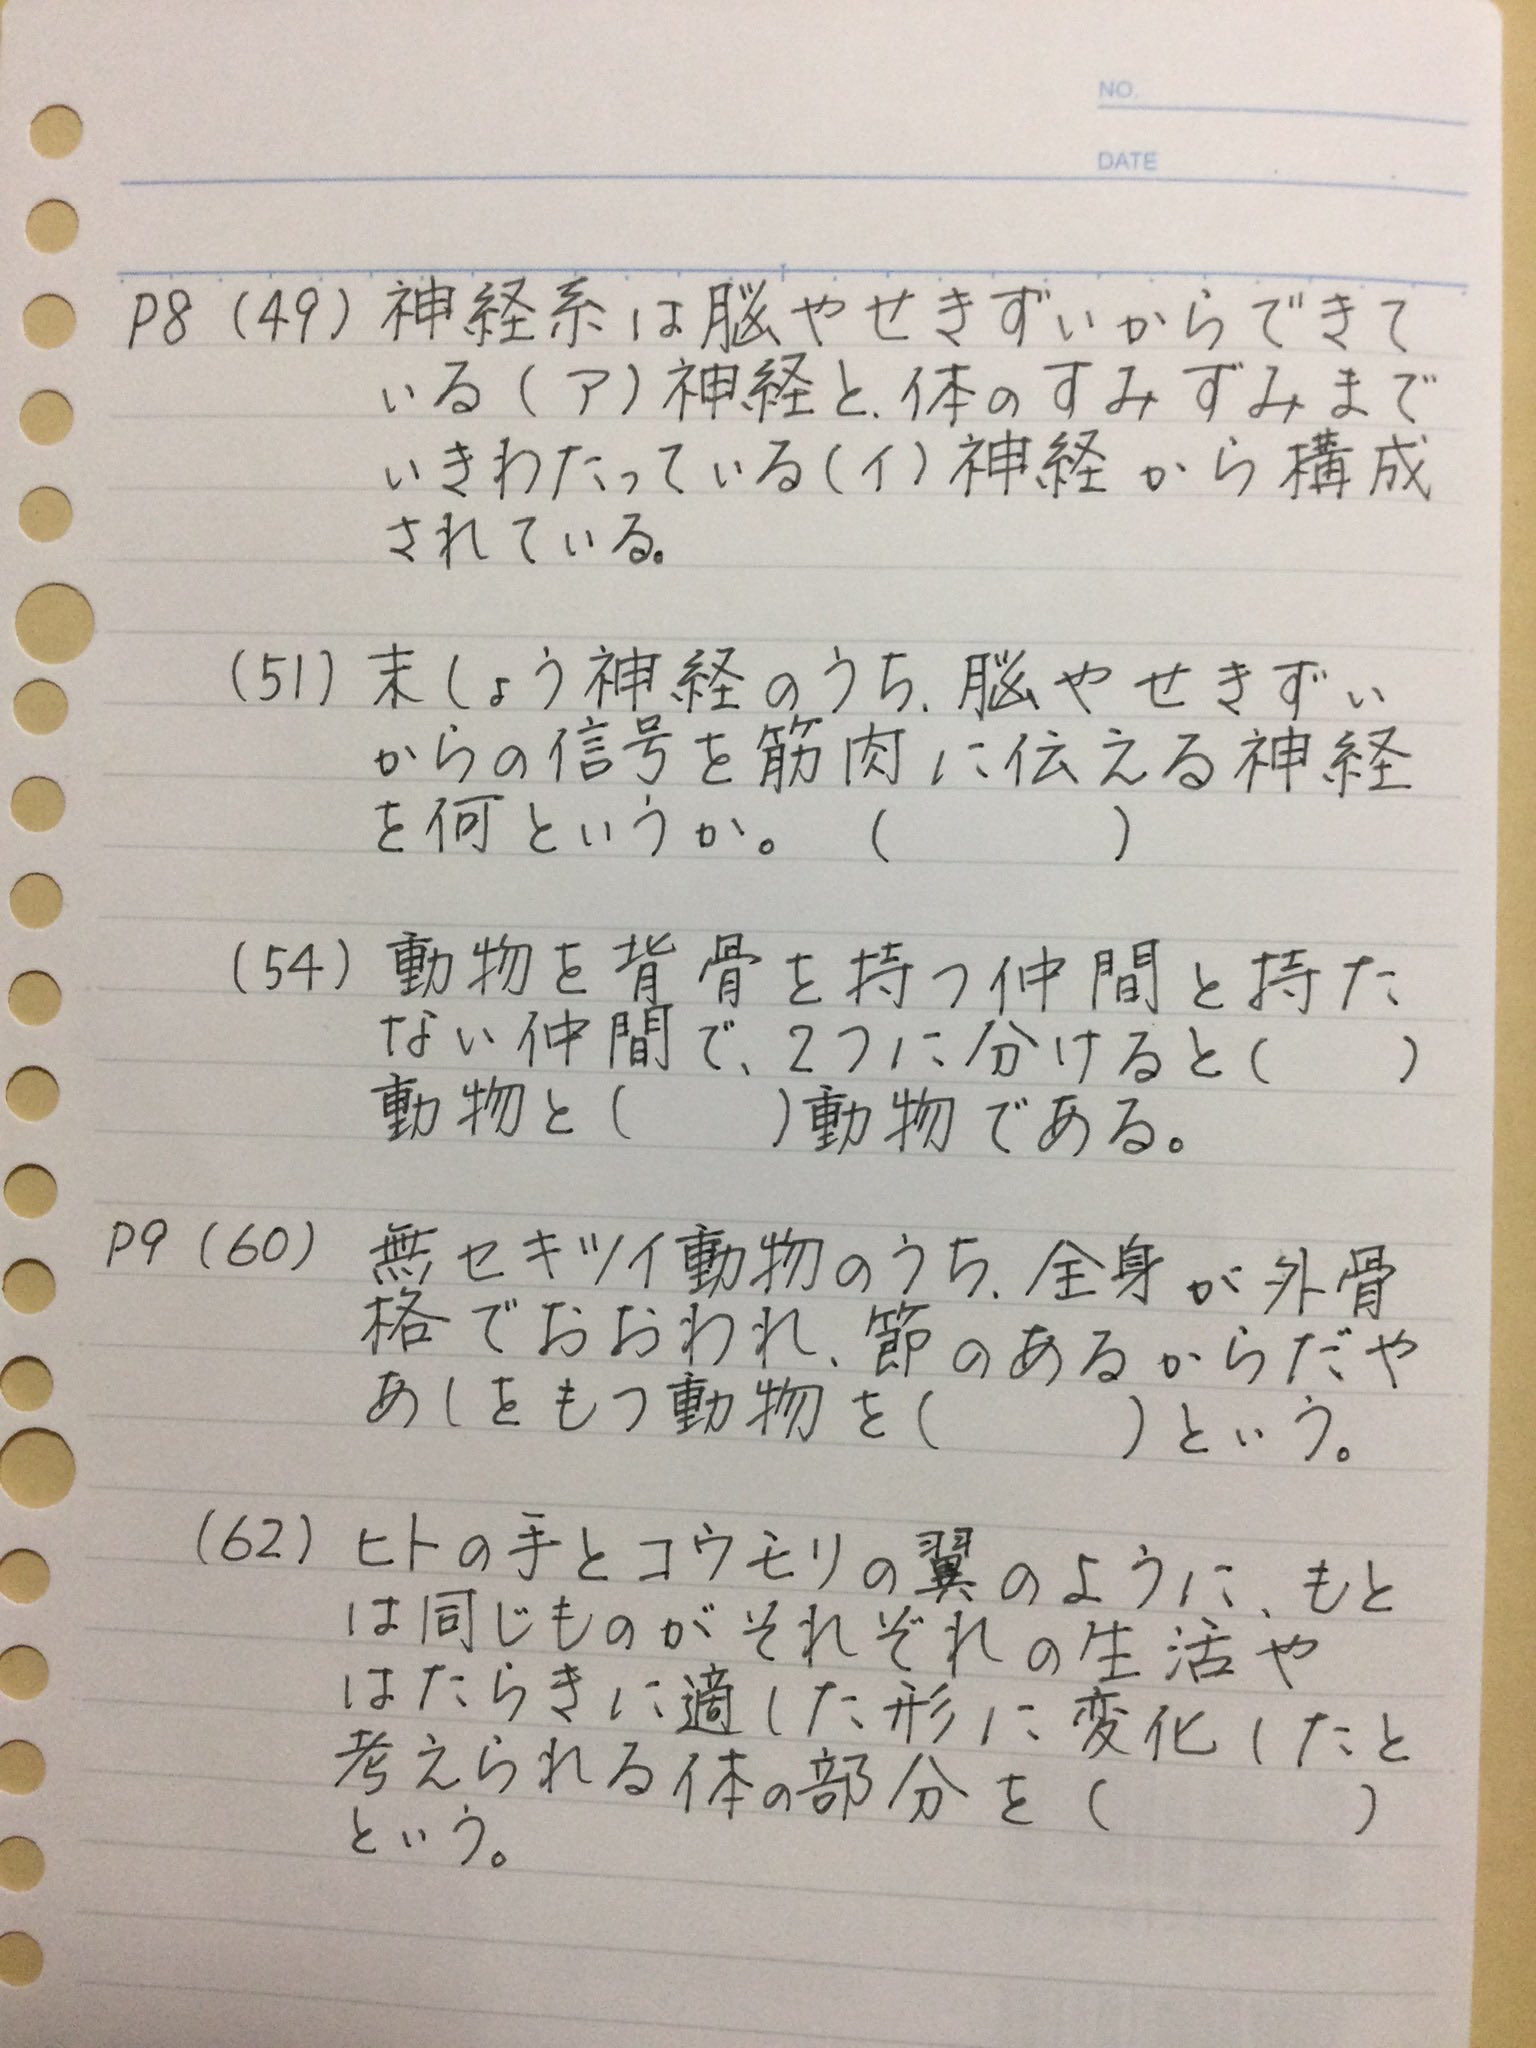 NO.
DATE
P8 (49) 神経系は脳やせきずいからできて
いる(ア)神経と、体のすみずみまで
いきわたっている(イ)神経から構成
されている。
(51) 末しょう神経のうち、脳やせきずい
からの信号を筋肉に伝える神経
を何というか。 (    )
(54) 動物を背骨を持つ仲間と持た
ない仲間で、2つに分けると(    )
動物と(    )動物である。
P9 (60) 無セキツイ動物のうち、全身が外骨
格でおおわれ、節のあるからだや
あしをもつ動物を(    )という。
(62) ヒトの手とコウモリの翼のように、もと
は同じものがそれぞれの生活や
はたらきに適した形に変化したと
考えられる体の部分を(    )
という。